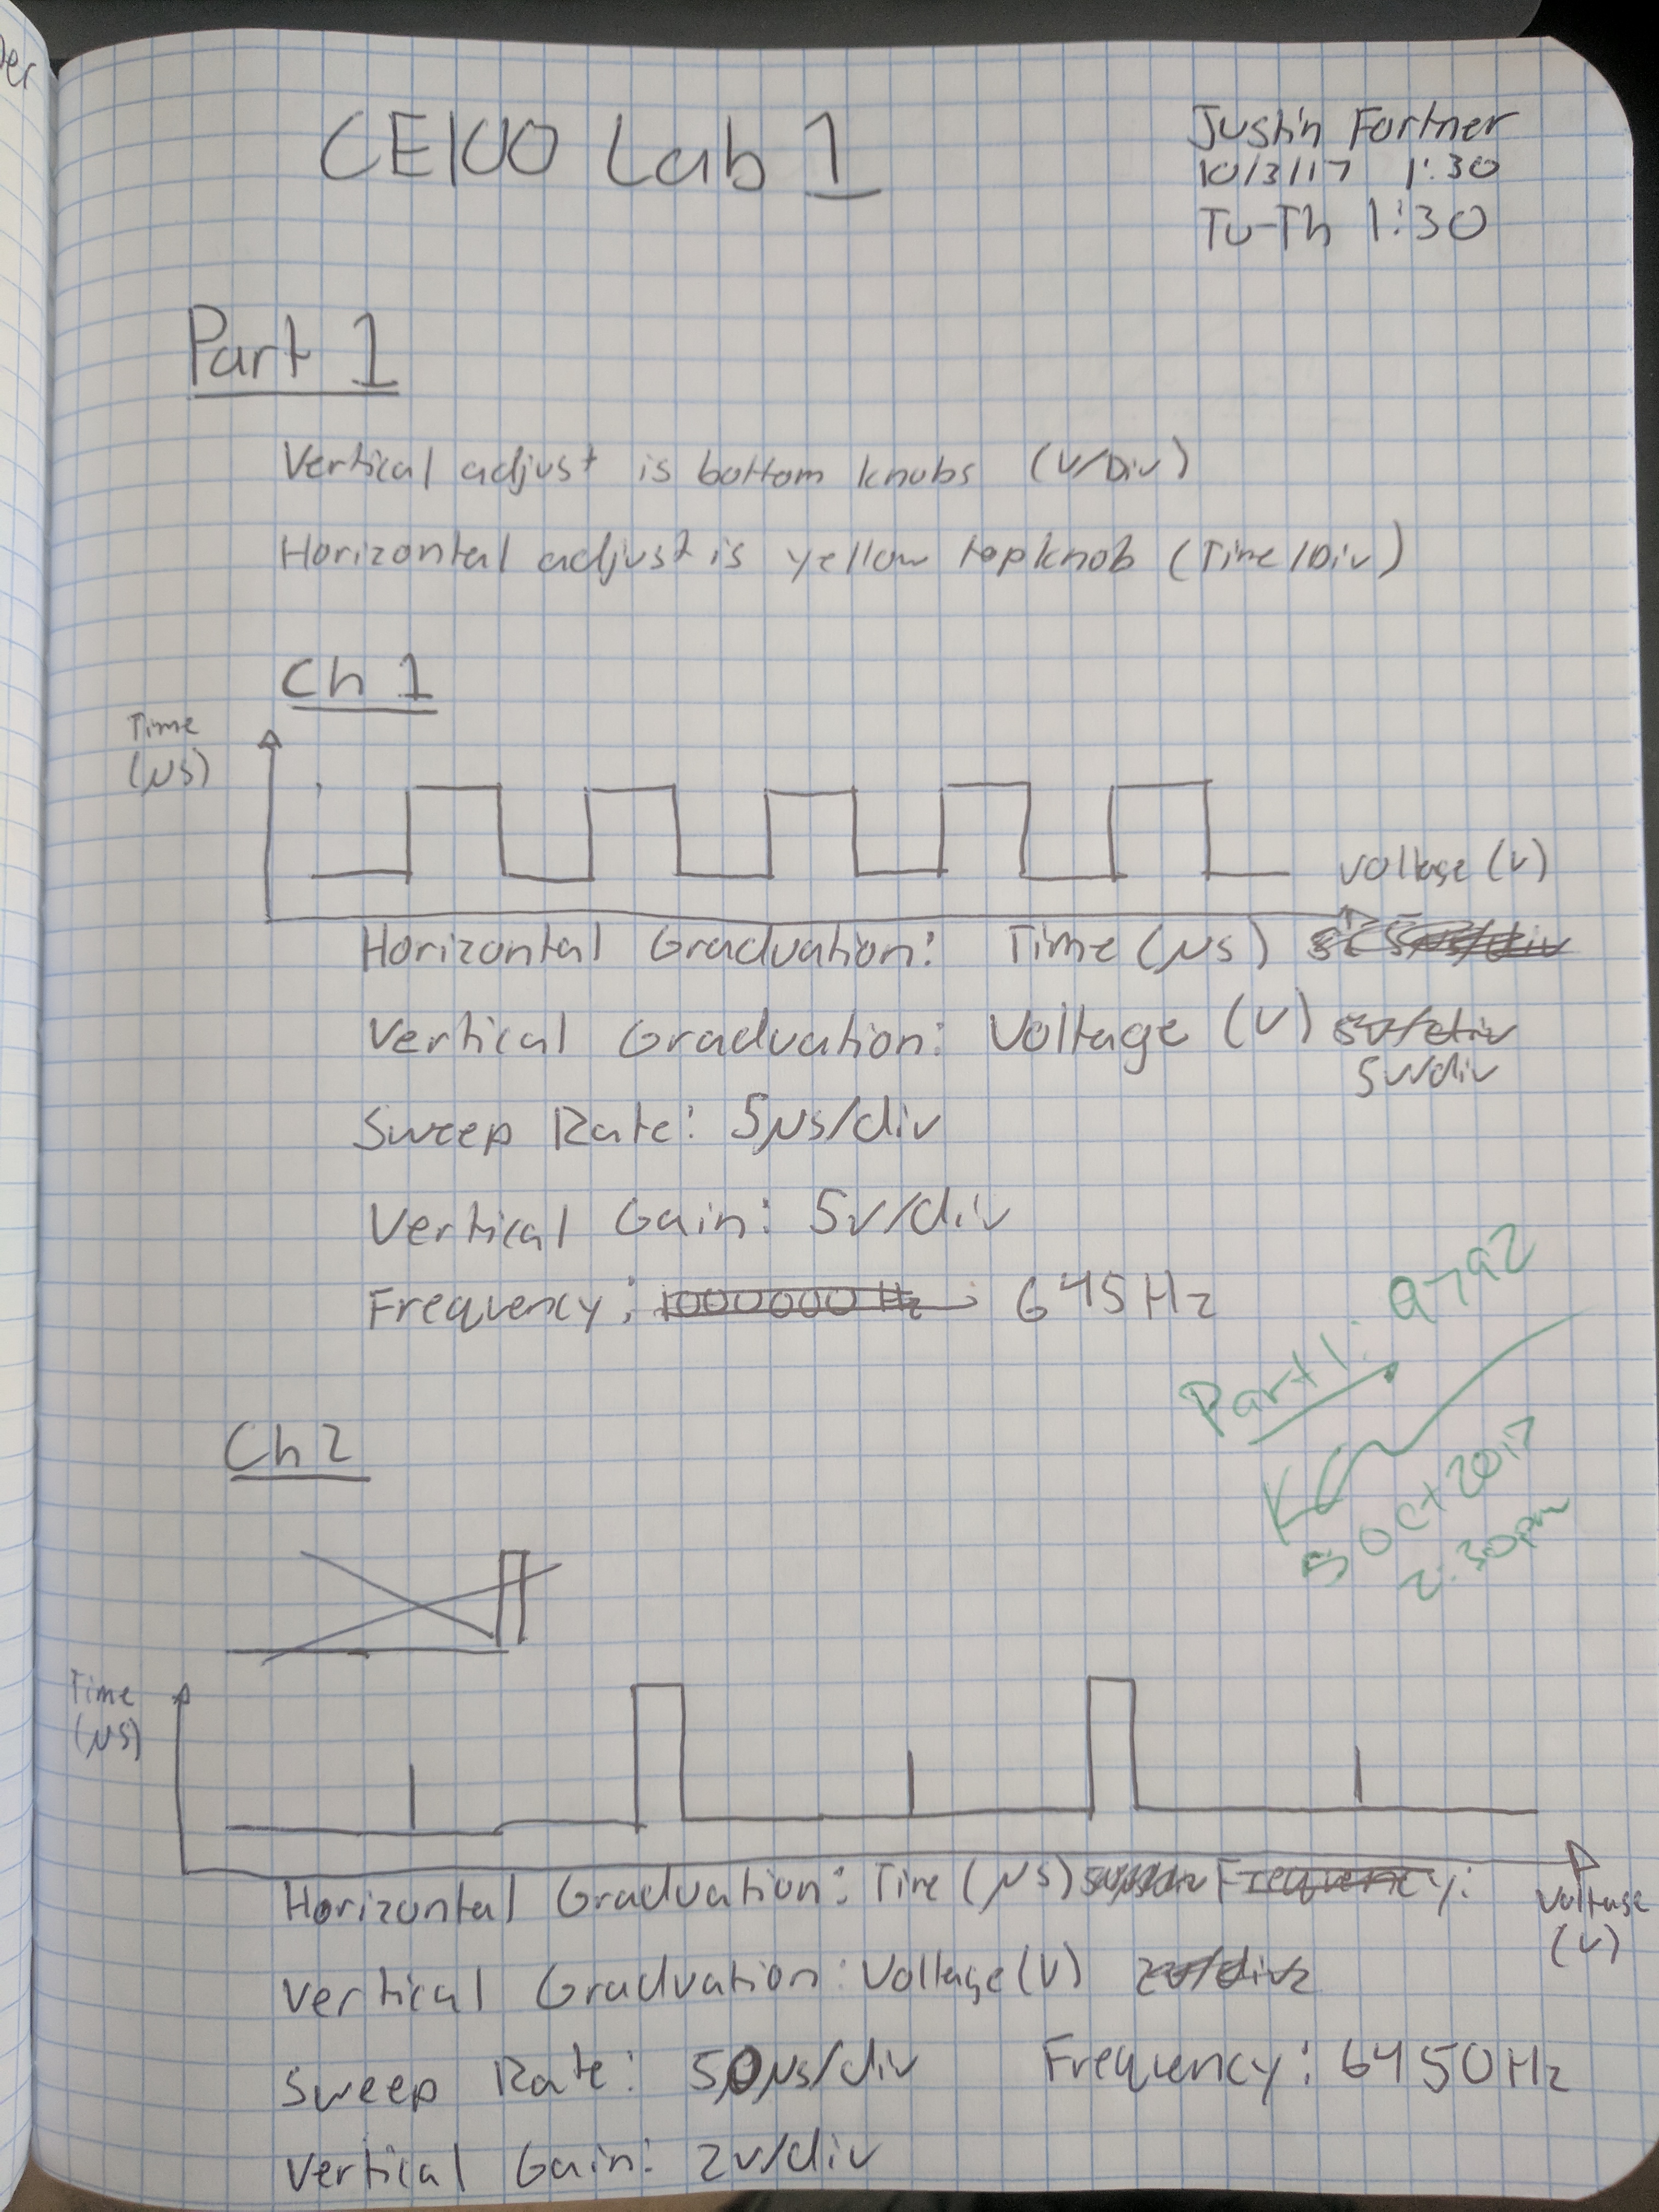 CE100 Lab 1
Justin Fortner
10/3/17 1:30
Tu-Th 1:30
Part 1
Vertical adjust is bottom knobs (V/Div)
Horizontal adjust is yellow top knob (Time/Div)
Ch 1
Time
(μs)
Voltage (V)
Horizontal Graduation: Time (μs)
Vertical Graduation: Voltage (V) 5V/div
5V/div
Sweep Rate: 5μs/div
Vertical Gain: 5v/div
Frequency: 1000000 Hz 645Hz
Part 1:
5 Oct 2017
2:30pm
Ch 2
Time
(μs)
Horizontal Graduation: Time (μs) Frequency:
Voltage
(V)
Vertical Graduation: Voltage (V)
Sweep Rate: 50μs/div Frequency: 6450Hz
Vertical Gain: 2v/div